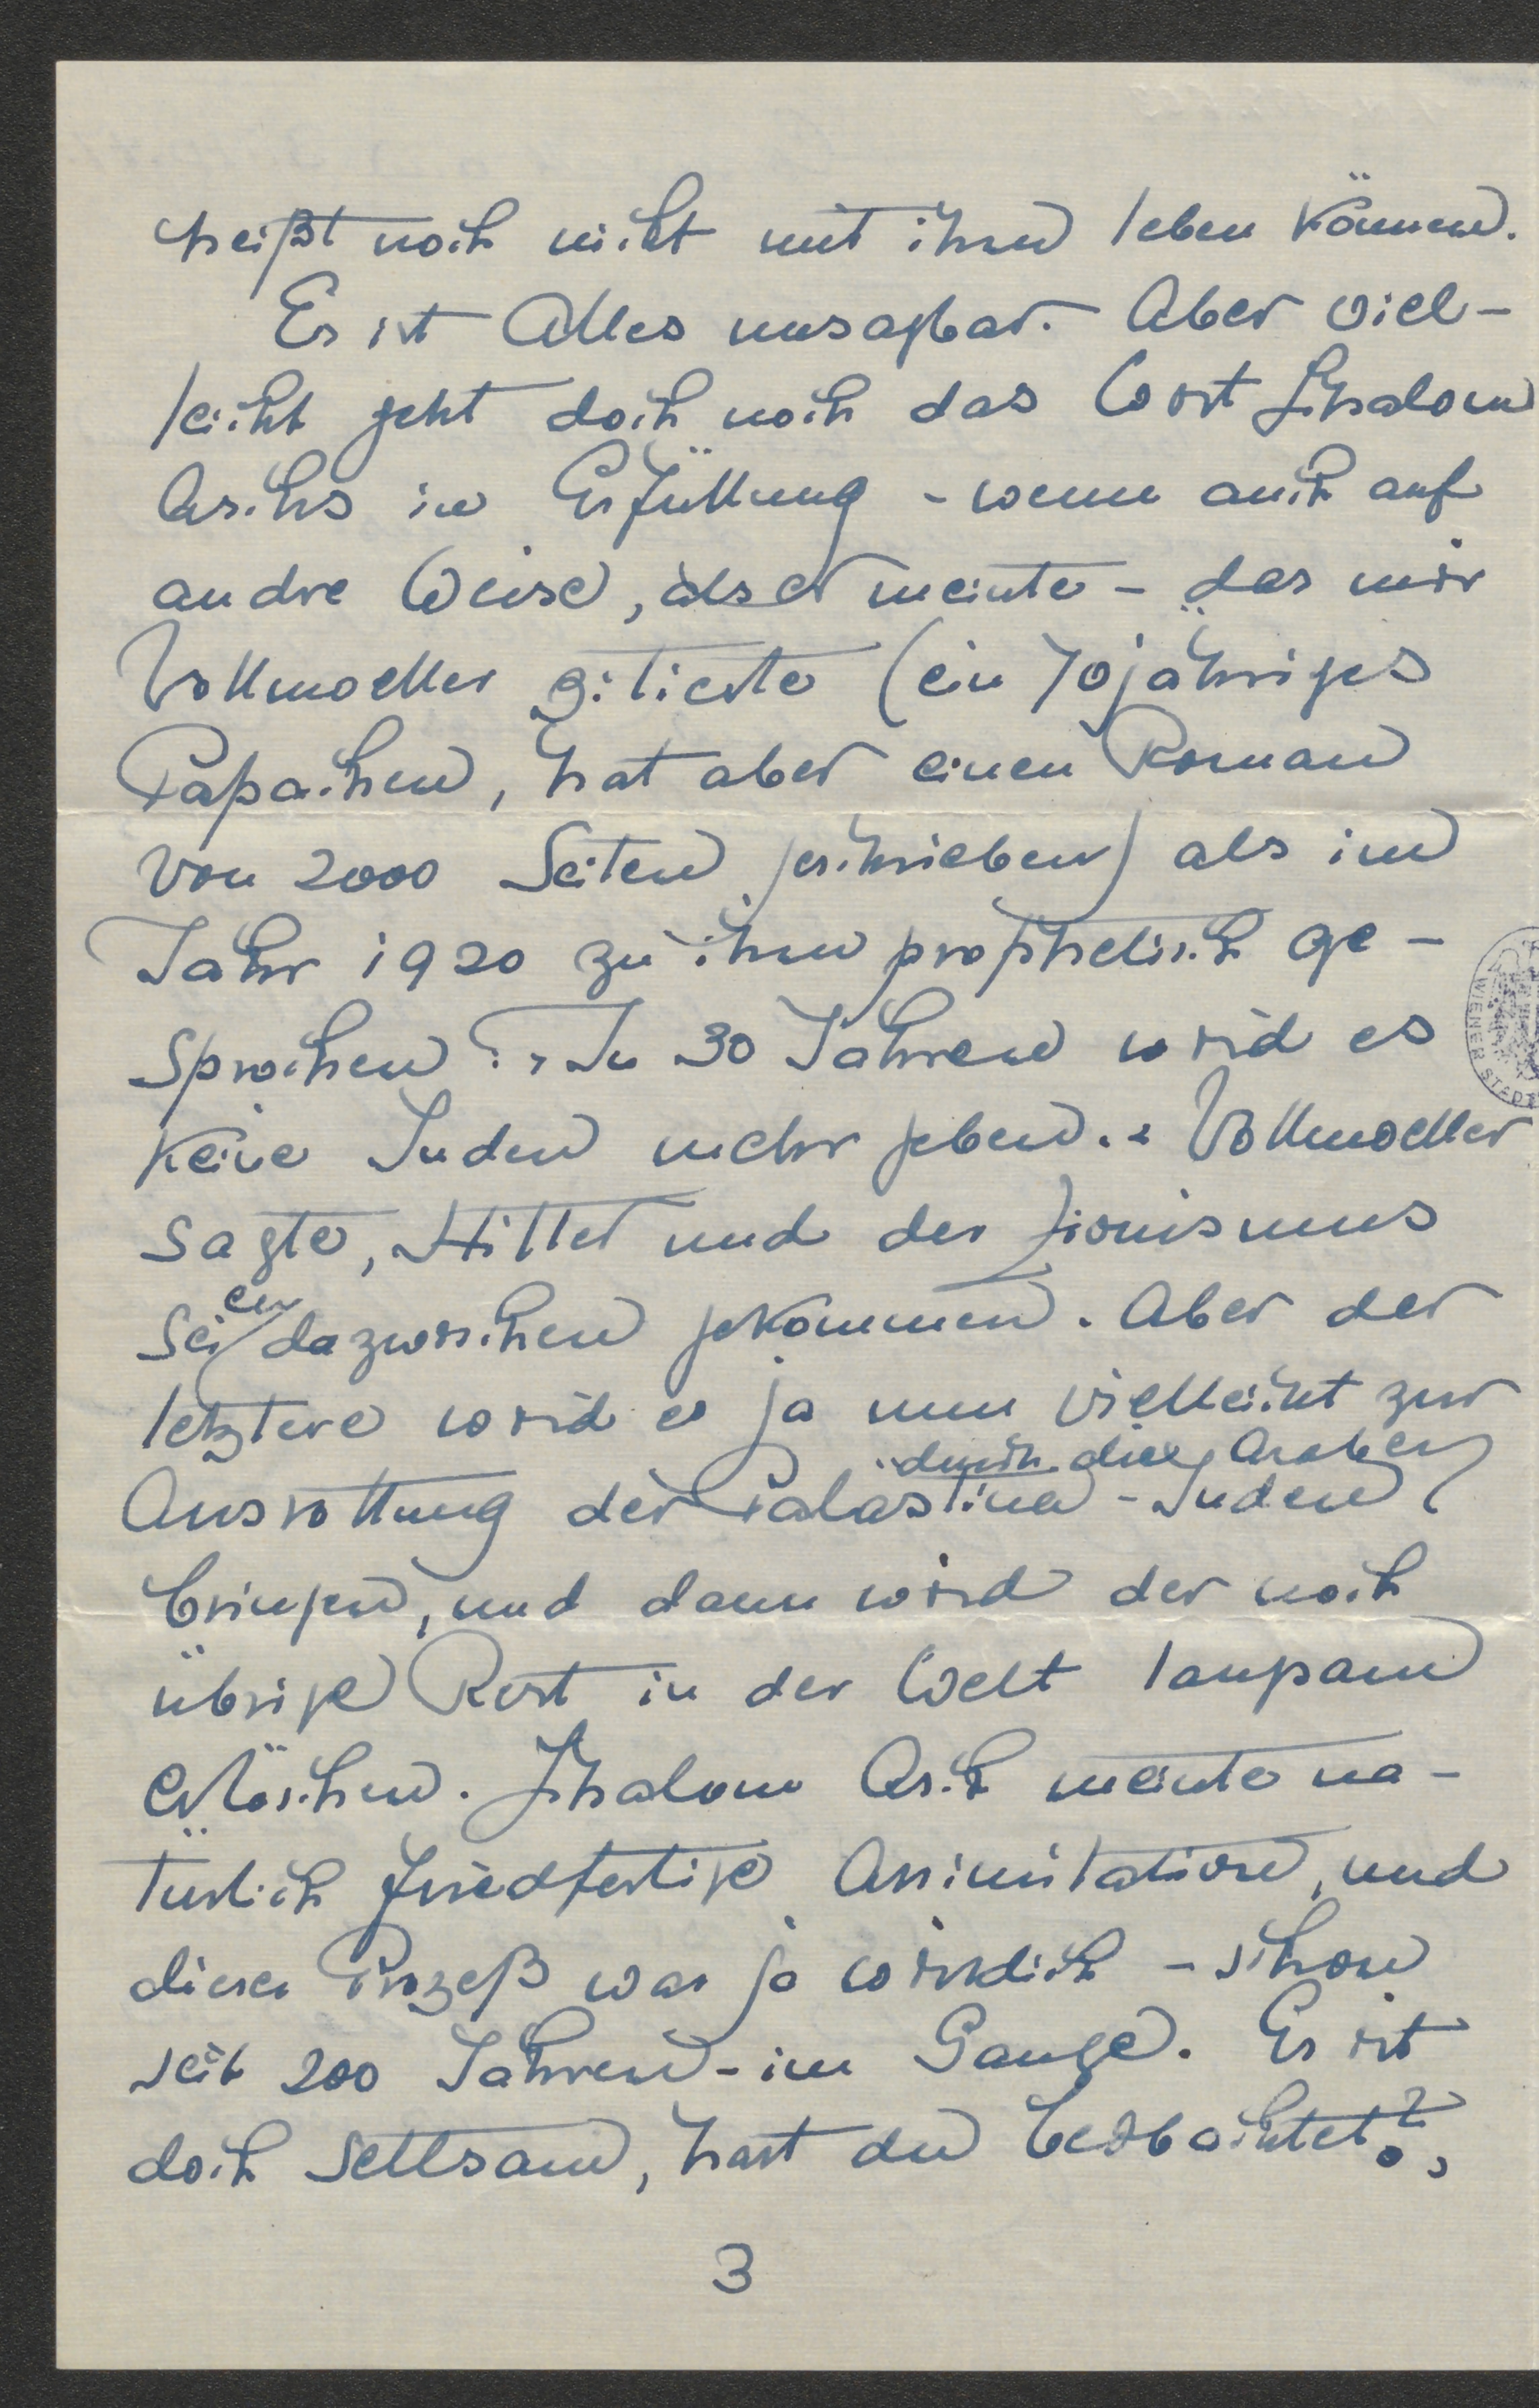 heißt noch nicht mit ihnen leben können.
Es ist Alles unsagbar. Aber viel-
leicht geht doch noch das Wort Schalom
Aschs in Erfüllung - wenn auch auf
andre Weise, als er meinte - das mir
Vollmoeller zitierte (ein 70jähriges
Papachen, hat aber einen Roman
von 2000 Seiten geschrieben) als im
Jahr 1920 zu ihm prophetisch ge-
sprochen: "In 30 Jahren wird es
keine Juden mehr geben." Vollmoeller
sagte, Hitler und der Zionismus
seien dazwischen gekommen. Aber der
letztere wird es ja nun vielleicht zur
Ausrottung der Palästina-Juden durch die Araber
bringen, und dann wird der noch
übrige Rest in der Welt langsam
erlöschen. Schalom Asch meinte na-
türlich friedfertige Assimilation, und
dieser Prozeß war ja wirklich - schon
seit 200 Jahren - im Gange. Es ist
doch seltsam, hast du beobachtet?,
3
WIENER STADT